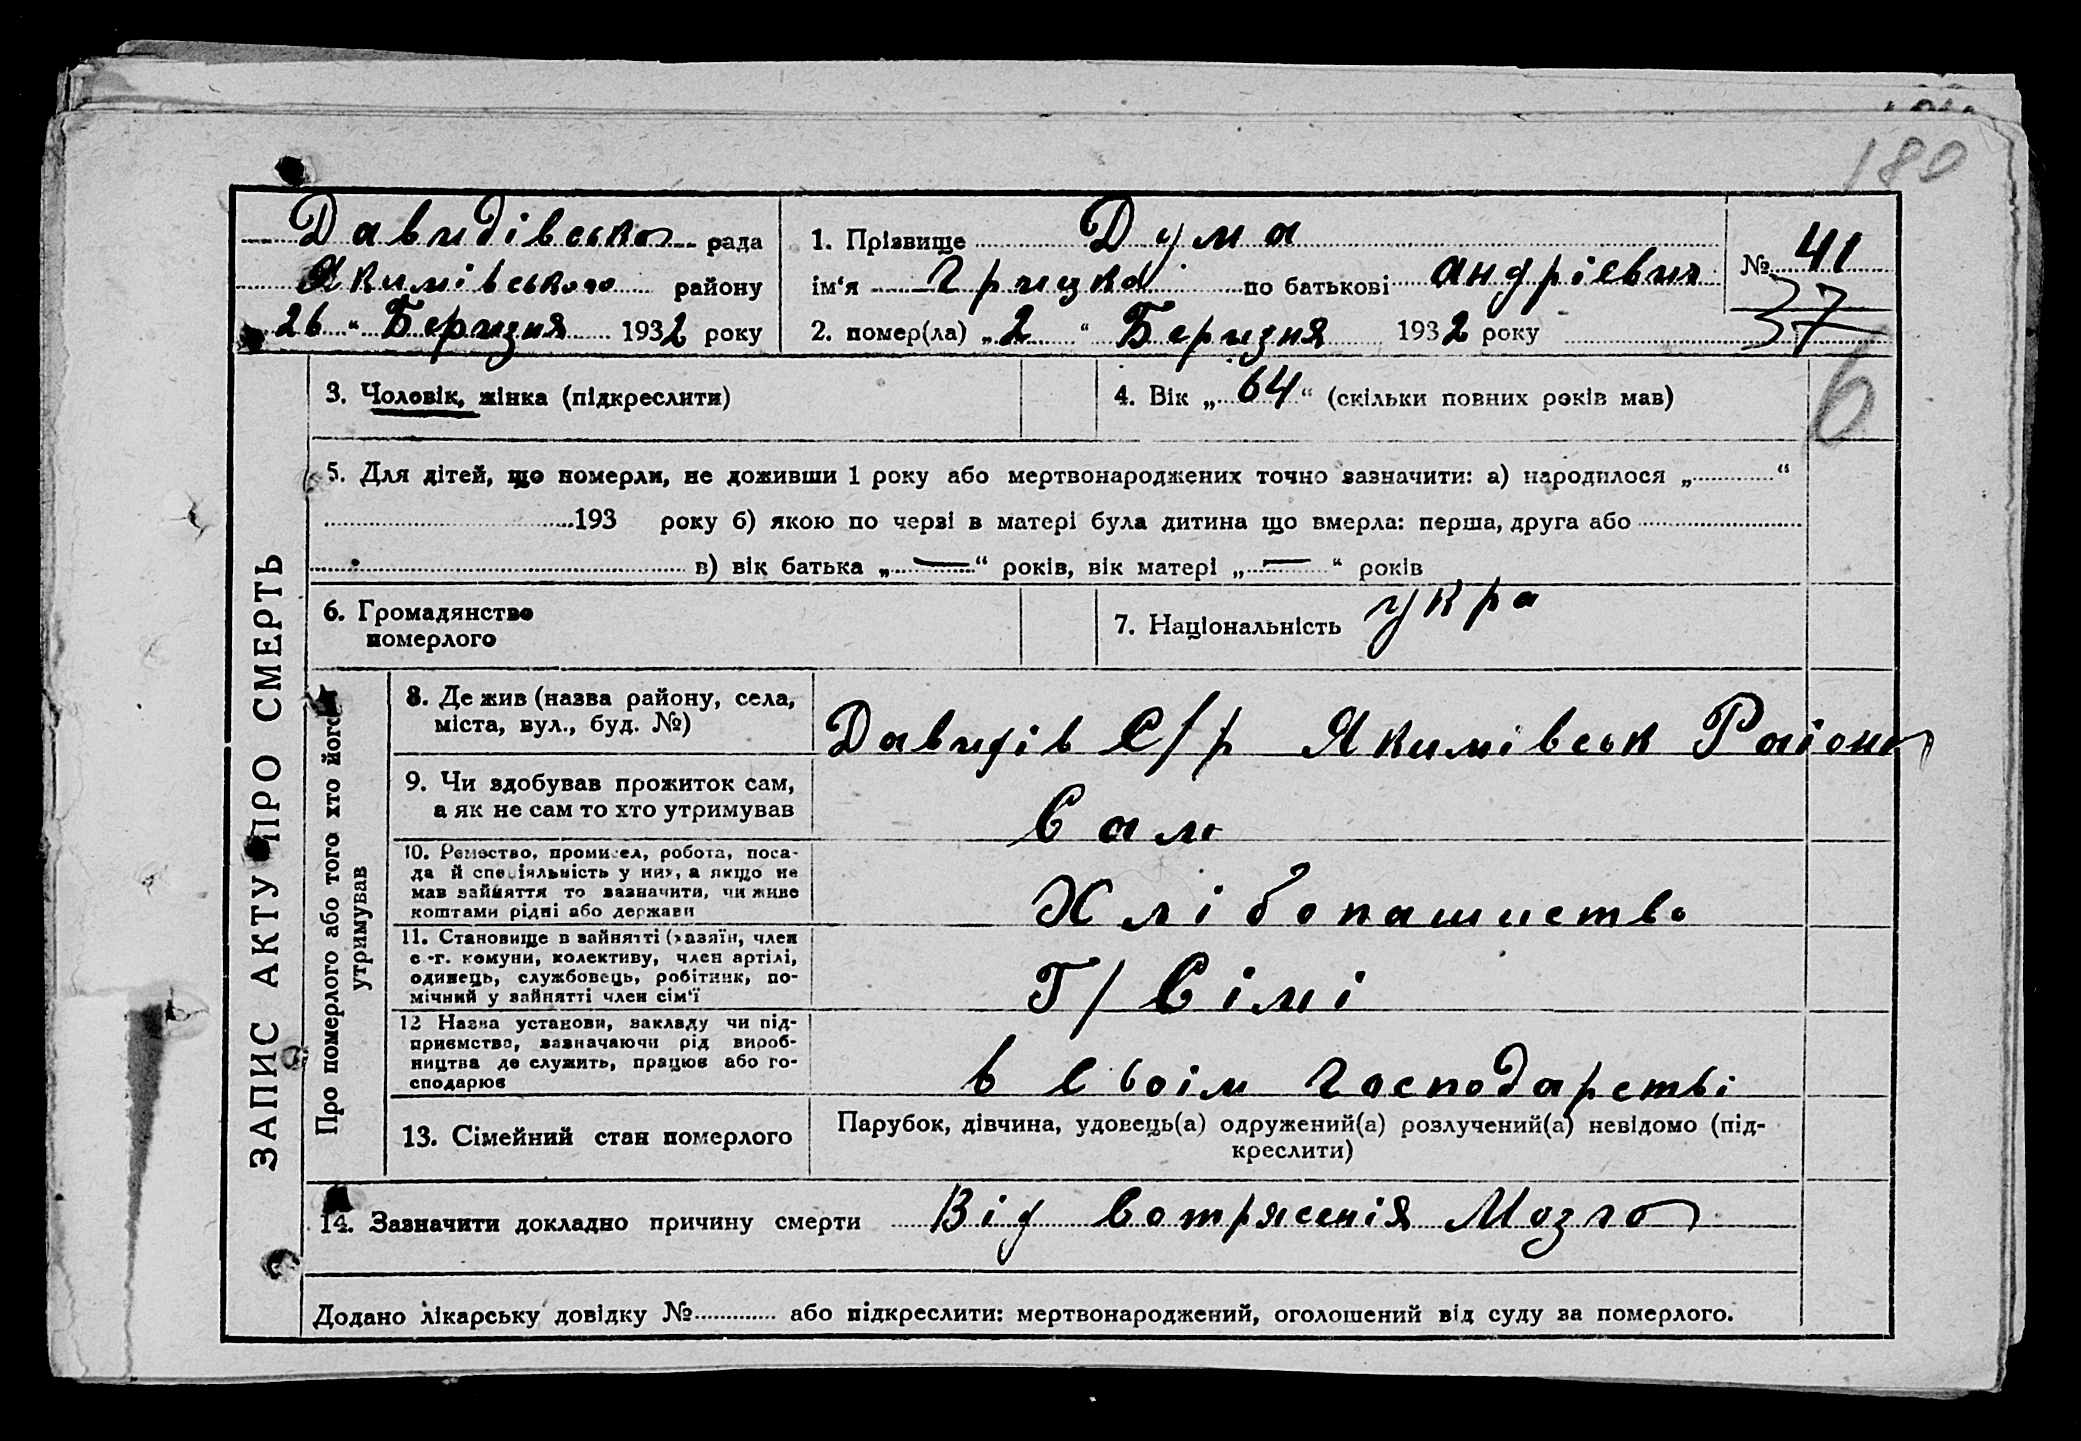 180
Давидівська рада
Якимівського району
26 " Беризня 1932 року
1. Прізвище Дума
ім'я Грицко по батькові андрієвич
2. помер(ла) „2 " Беризня 1932 року
№ 41
37
6
ЗАПИС АКТУ ПРО СМЕРТЬ
3. Чоловік, жінка (підкреслити)
4. Вік „64" (скільки повних років мав)
5. Для дітей, що померли, не доживши 1 року або мертвонароджених точно зазначити: а) народилося „ "
193 року б) якою по черзі в матері була дитина що вмерла: перша, друга або
в) вік батька „—" років, вік матері „—" років
6. Громадянство
померлого
7. Національність укра
Про померлого або того хто його
утримував
8. Де жив (назва району, села,
міста, вул., буд. №)
Давидів С/р Якимівськ Района
9. Чи здобував прожиток сам,
а як не сам то хто утримував
Сам
10. Ремество, промисел, робота, поса-
да й спеціяльність у них, а якщо не
мав зайняття то зазначити, чи живе
коштами рідні або держави
Хлібопашиство
11. Становище в зайнятті (хазяїн, член
с.-г. комуни, колективу, член артілі,
одинець, службовець, робітник, по-
мічний у зайнятті член сім'ї
Г/Сімі
12 Назва установи, закладу чи під-
приємства, зазначаючи рід вироб-
ництва де служить, працює або го-
сподарює
в Своім Господарстві
13. Сімейний стан померлого
Парубок, дівчина, удовець(а) одружений(а) розлучений(а) невідомо (під-
креслити)
14. Зазначити докладно причину смерти Від Сотрясенія Мозга
Додано лікарську довідку № або підкреслити: мертвонароджений, оголошений від суду за померлого.